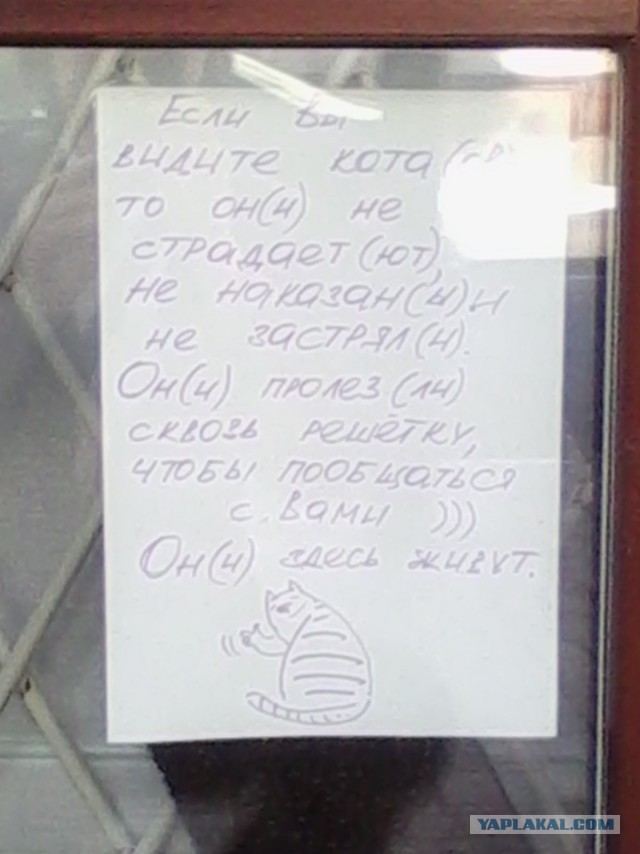 Если вы
видите кота
то он(и) не
страдает(ют),
не наказан(ы) и
не застрял(и).
Он(и) пролез(ли)
сквозь решётку,
чтобы пообщаться
с вами )))
Он(и) здесь живут.
YAPLAKAL.COM